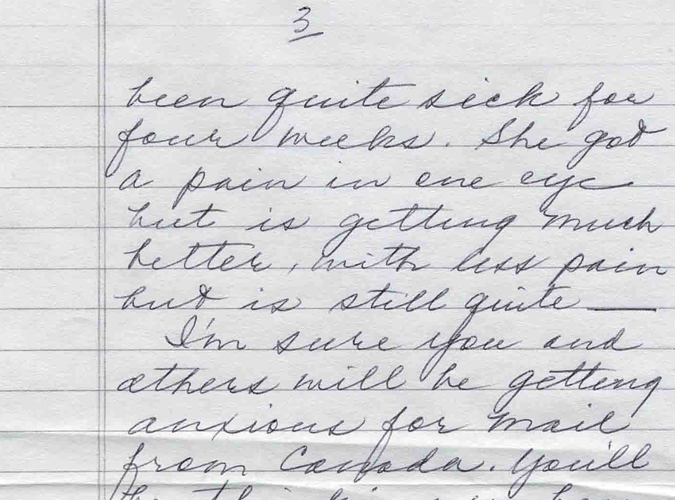 3
been quite sick for
four weeks. She got
a pain in one eye
but is getting much
better, with less pain
but is still quite ___
I'm sure you and
others will be getting
anxious for mail
from Canada. You'll